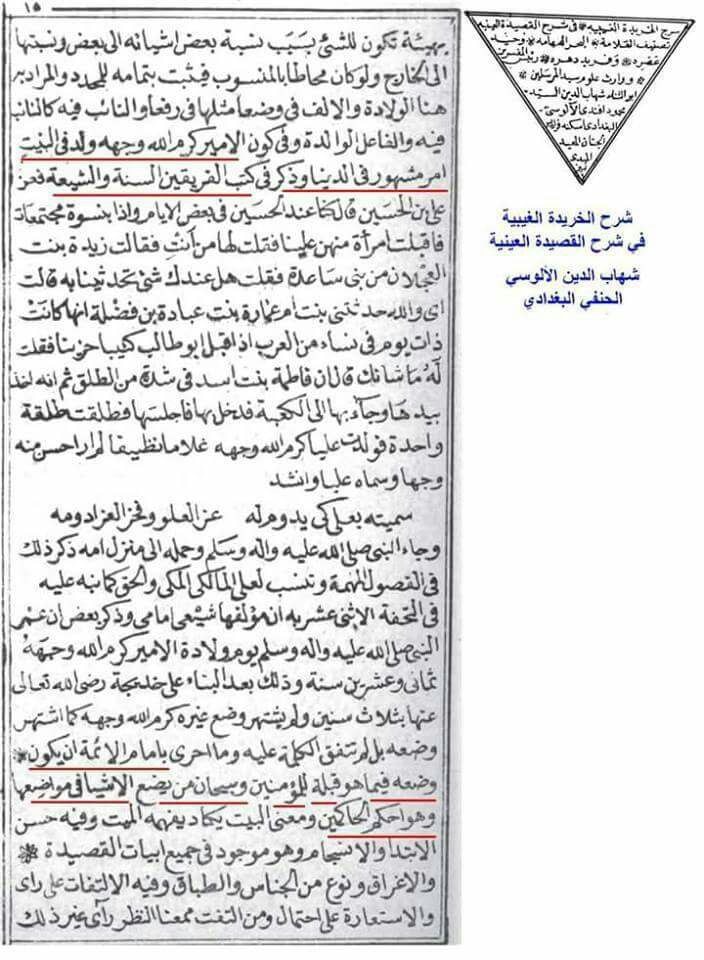 ١٥
بهيئة تكون للشئ بسبب نسبة بعض اشيائه الى بعض ونسبتها
الى الخارج ولو كان محاطا بالمنسوب فيثبت بتمامه للمحدد والمراد به
هنا الولادة والالف في وضعا مثلها في رفعا والنائب فيه كالنائب
فيه والفاعل الوالدة وفي كون الامير كرم الله وجهه ولد في البيت
امر مشهور في الدنيا وذكر في كتب الفريقين السنة والشيعة فعن
على بن الحسين قال كنا عند الحسين في بعض الايام واذا بنسوة مجتمعات
فاقبلت امرأة منهن علينا فقلت لها من انت فقالت زيدة بنت
العجلان من بنى ساعدة فقلت هل عندك شئ تحدثينا به قالت
اى والله حدثتنى بنت ام عمارة بنت عبادة بن فضلة انها كانت
ذات يوم في نساء من العرب اذ اقبل ابو طالب كئيبا حزينا فقلت
له ما شانك قال ان فاطمة بنت اسد في شدة من الطلق ثم انه اخذ
بيدها وجاء بها الى الكعبة فدخل بها فاجلسها فطلقت طلقة
واحدة فولدت عليا كرم الله وجهه غلاما نظيفا لم ار احسن منه
وجها وسماه عليا وانشد
سميته بعلى كى يدوم له عز العلو وفخر العز ادومه
وجاء النبى صلى الله عليه واله وسلم وحمله الى منزل امه ذكر ذلك
في الفصول المهمة وتنسب لعلى المالكى المكى والحق كما نبه عليه
في التحفة الاثنى عشريه ان مؤلفها شيعى امامى وذكر بعض ان عمر
النبى صلى الله عليه واله وسلم يوم ولادة الامير كرم الله وجهه
ثمانى وعشرين سنة وذلك بعد البناء على خديجة رضى الله تعالى
عنها بثلاث سنين ولم يشتهر وضع غيره كرم الله وجهه كما اشتهر
وضعه بل لم تتفق الكلمة عليه وما احرى بامام الائمة ان يكون
وضعه فيما هو قبلة للمؤمنين وسبحان من يضع الاشيا في مواضعها
وهو احكم الحاكمين ومعنى البيت يكاد يفهمه الميت وفيه حسن
الابتدا والانسجام وهو موجود في جميع ابيات القصيدة
والاغراق ونوع من الجناس والطباق وفيه الالتفات على راى
والاستعارة على احتمال ومن التفت ممعنا النظر رآى غير ذلك
شرح الخريدة الغيبيه في شرح القصيدة العينيه
تصنيف العلامة البحر الفهامه وحيد
عصره وفريد دهره رئيس المفسرين
ووارث علوم سيد المرسلين
ابو الثناء شهاب الدين السيد
محمود افندى الالوسى
البغدادى
شرح الخريدة الغيبية
في شرح القصيدة العينية
شهاب الدين الآلوسي
الحنفي البغدادي